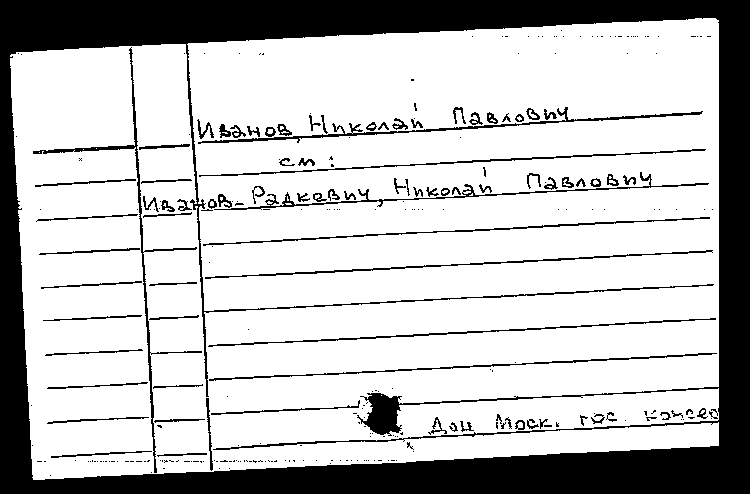 Иванов, Николай Павлович
см:
Иванов-Радкевич, Николай Павлович
Доц. Моск. гос. консер